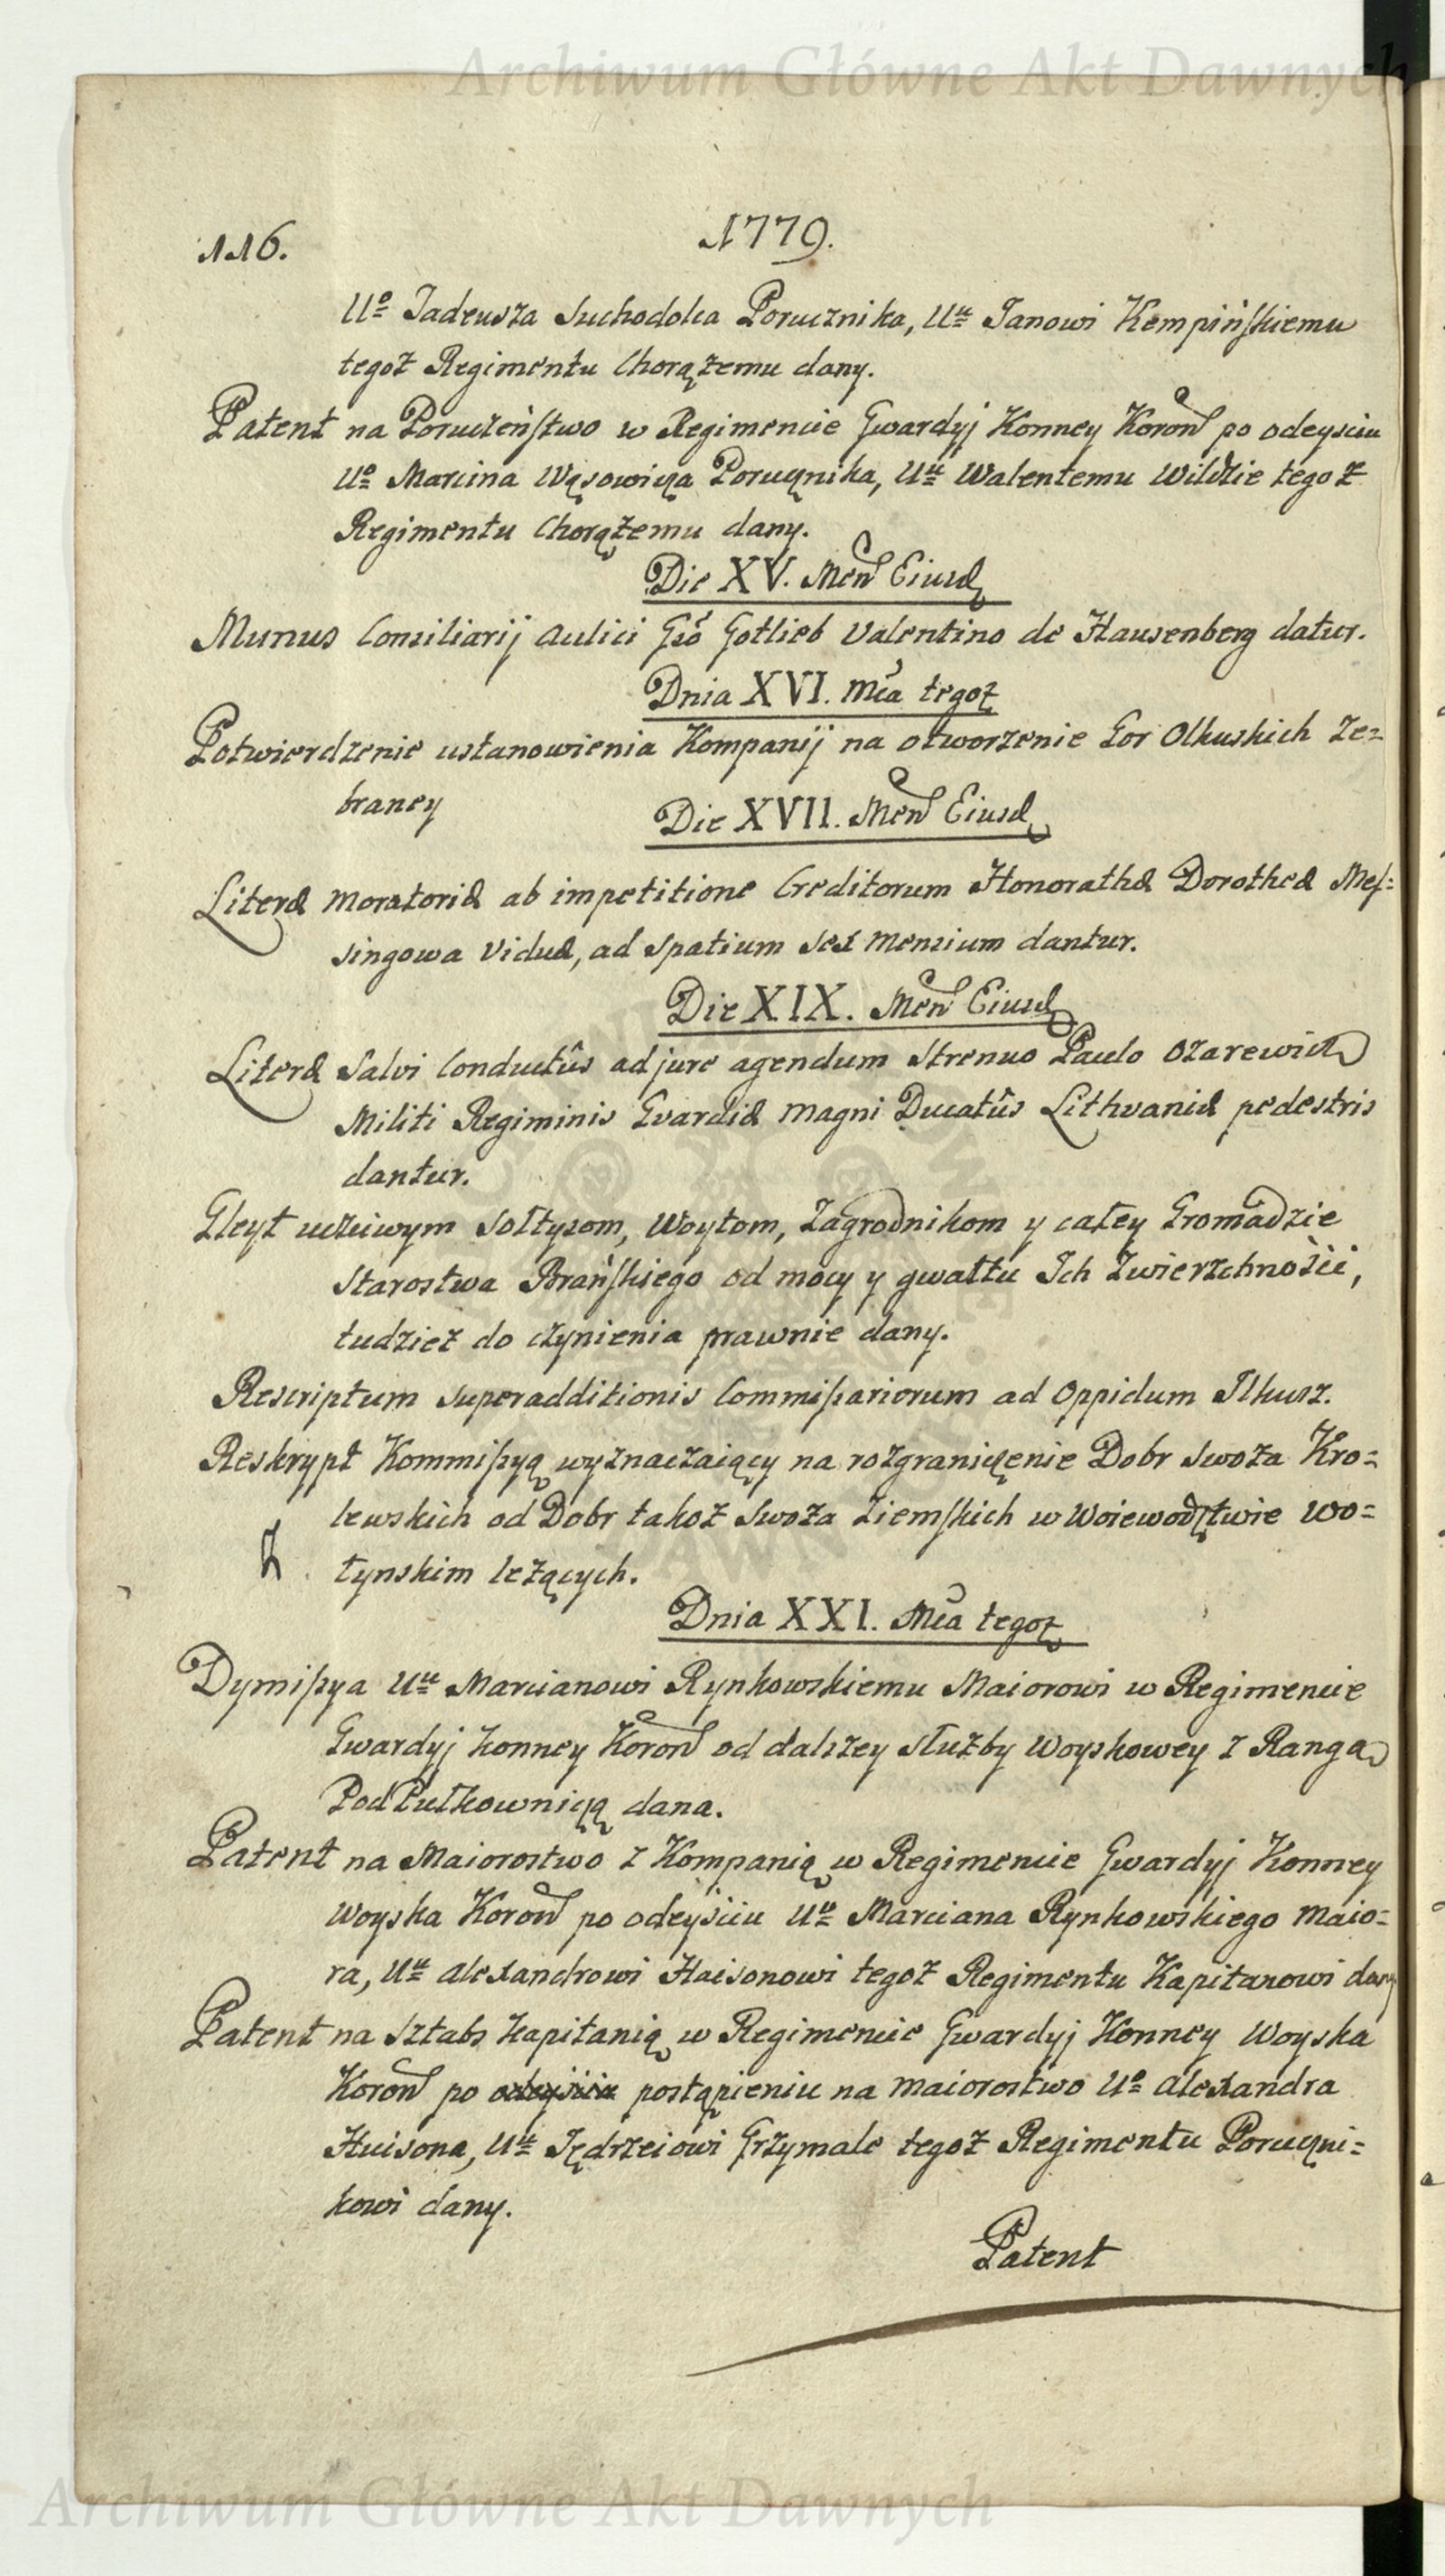 Archiwum Główne Akt Dawnych
116. 1779.
Uº Tadeusza Suchodolca Porucznika, Uu Janowi Kempińskiemu
tegoż Regimentu Chorążemu dany.
Patent na Poruczeństwo w Regimencie Gwardyj Konney Koron po odeysciu
Uº Marcina Wąsowicza Porucznika, Uu Walentemu Wildzie tegoż
Regimentu Chorążemu dany.
Die XV. Men Eiusd
Munus Consiliarij Aulici Gsó Gotlieb Valentino de Hausenberg datur.
Dnia XVI. Mca tegoż
Potwierdzenie ustanowienia Kompanij na otworzenie Gor Olkuskich ze=
braney
Die XVII. Men Eiusd
Literæ moratoriæ ab impetitione Creditorum Honorathæ Dorotheæ Mes=
singowa Viduæ, ad spatium sex mensium dantur.
Die XIX. Men Eiusd
Literæ Salvi Conductûs ad jure agendum Strenuo Paulo Ozarewicz
Militi Regiminis Gvardiæ Magni Ducatûs Lithvaniæ pedestris
dantur.
Gleyt uczciwym Sołtysom, Woytom, Zagrodnikom y całey Gromadzie
Starostwa Brańskiego od mocy y gwałtu Ich Zwierzchności,
tudzież do czynienia prawnie dany.
Rescriptum superadditionis Commissariorum ad Oppidum Ilkusz.
Reskrypt Kommissyą wyznaczaiący na rozgraniczenie Dobr Swoza Kro=
lewskich od Dobr takoż Swoza Ziemskich w Woiewodztwie Wo=
łynskim leżących.
Dnia XXI. Mca tegoż
Dymissya Uu Marcianowi Rynkowskiemu Maiorowi w Regimencie
Gwardyj Konney Koron od dalszey służby Woyskowey z Rangą
PodPułkowniczą dana.
Patent na Maiorostwo z Kompanią w Regimencie Gwardyj Konney
Woyska Koron po odeyściu Uº Marciana Rynkowskiego Maio=
ra, Uu Alexandrowi Haisonowi tegoż Regimentu Kapitanowi dany
Patent na Sztabs Kapitanią w Regimencie Gwardyj Konney Woyska
Koron po odeyściu postąpieniu na Maiorostwo Uº Alexandra
Huisona, Uu Jędrzeiowi Grzymale tegoż Regimentu Poruczni=
kowi dany.
Patent
Archiwum Główne Akt Dawnych